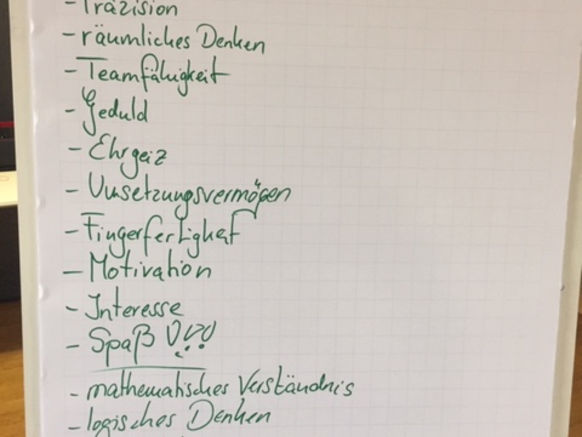 - Präzision
- räumliches Denken
- Teamfähigkeit
- Geduld
- Ehrgeiz
- Umsetzungsvermögen
- Fingerfertigkeit
- Motivation
- Interesse
- Spaß !!!
- mathematisches Verständnis
- logisches Denken